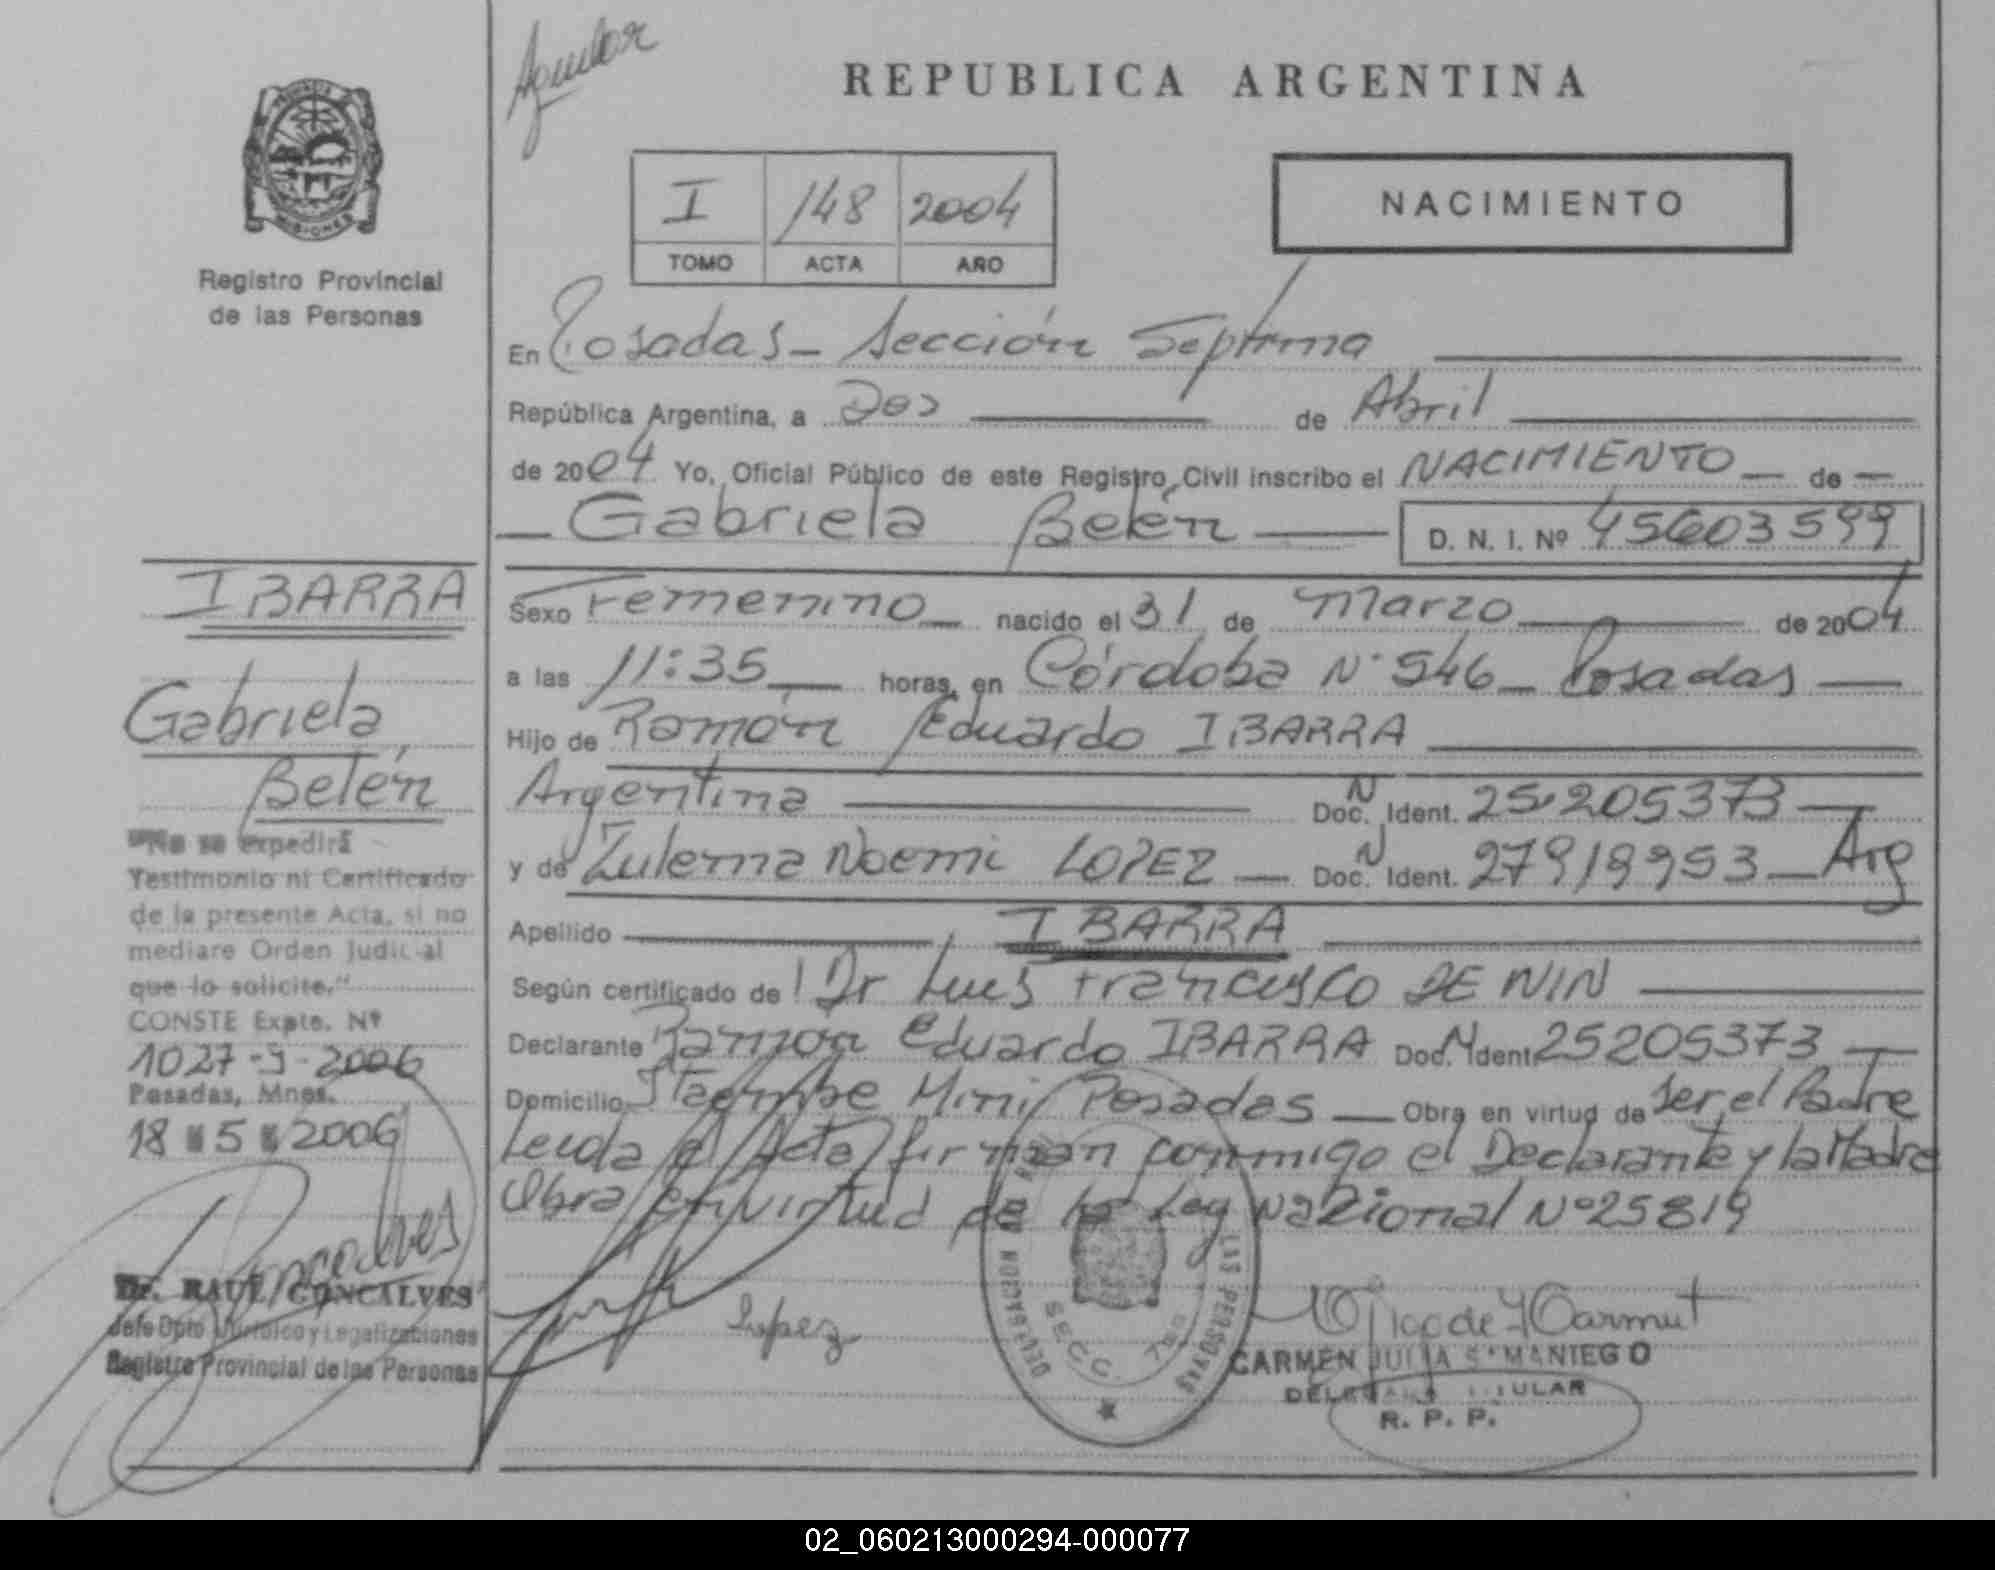 Aguilar
REPUBLICA ARGENTINA
I 148 2004
TOMO ACTA AÑO
NACIMIENTO
PROVINCIA
MISIONES
Registro Provincial
de las Personas
En Posadas - Sección Séptima
República Argentina, a Dos de Abril
de 2004 Yo, Oficial Público de este Registro Civil inscribo el NACIMIENTO de
Gabriela Belén D. N. I. Nº 45603599
Sexo Femenino nacido el 31 de Marzo de 2004
a las 11:35 horas, en Córdoba Nº 546 - Posadas
Hijo de Ramón Eduardo IBARRA
Argentina Doc. N Ident. 25.205373
y de Zulema Noemi LOPEZ Doc. N Ident. 27919953 Arg
Apellido IBARRA
Según certificado de Dr Luis Francisco DE NIN
Declarante Ramon Eduardo IBARRA Doc. N Ident. 25205373
Domicilio Itaembe Mini Posadas Obra en virtud de ser el Padre
Leida el Acta firman conmigo el Declarante y la Madre
Obra en virtud de la Ley Nacional Nº 25819
Lopez
DELEGACION
LAS PERSONAS
SECC. 7ma
CARMEN JULIA SAMANIEGO
DELEGADA TITULAR
R. P. P.
IBARRA
Gabriela
Belén
"No se expedirá
Testimonio ni Certificado
de la presente Acta, si no
mediare Orden Judicial
que lo solicite."
CONSTE Expte. Nº
1027-J-2006
Posadas, Mnes.
18 5 2006
Goncalves
Dr. RAUL GONCALVES
Jefe Dpto Jurídico y Legalizaciones
Registro Provincial de las Personas
02_060213000294-000077